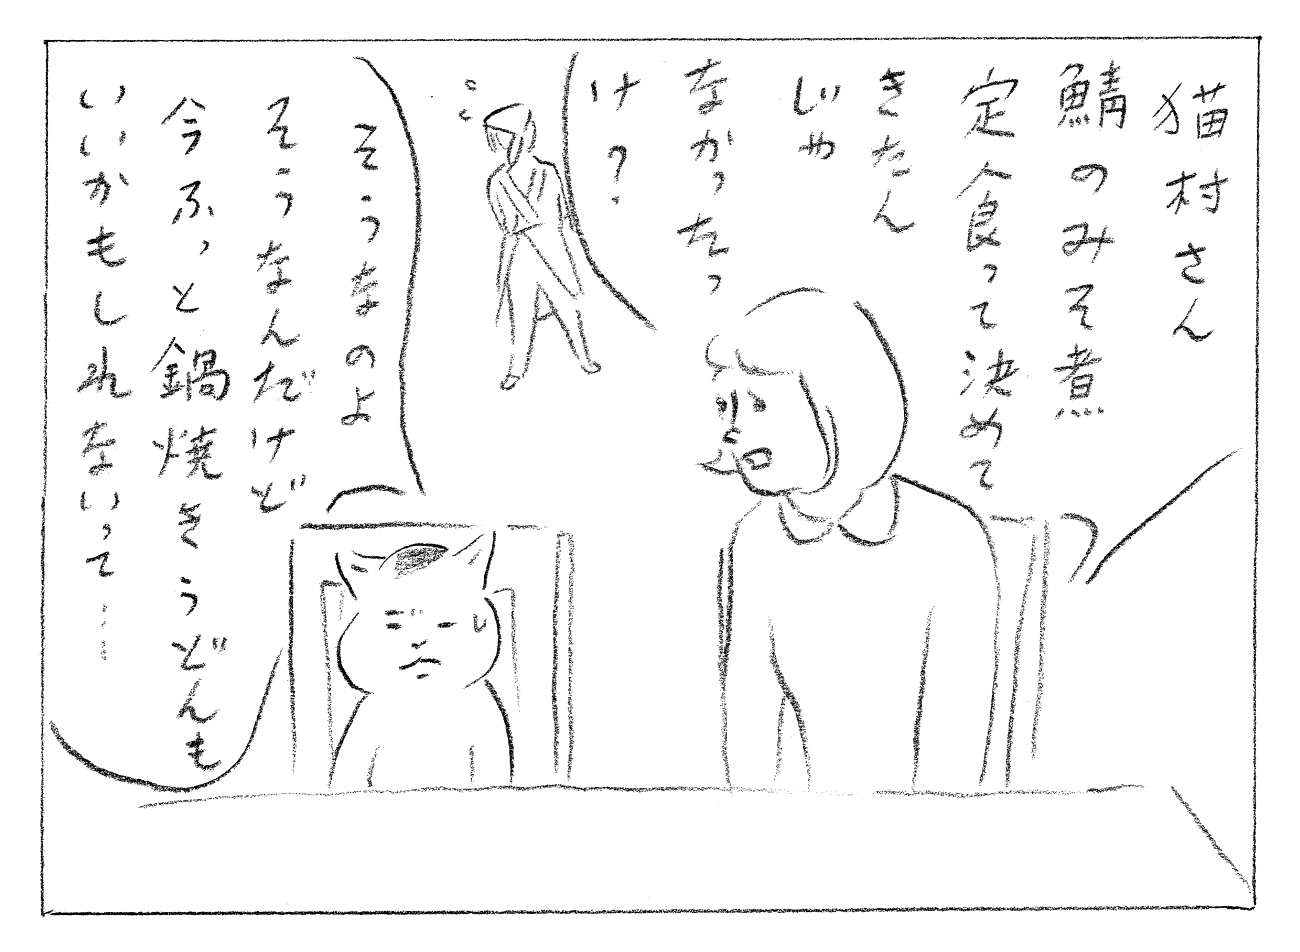 猫村さん
鯖のみそ煮
定食って決めて
きたん
じゃ
なかったっ
け?
そうなのよ
そうなんだけど
今ふっと鍋焼きうどんも
いいかもしれないって……